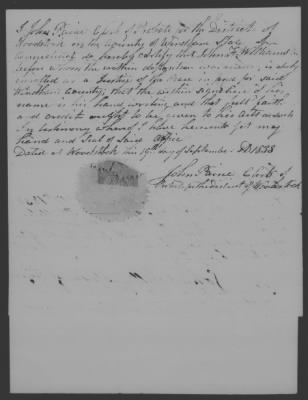 I John Paine Clerk of Probate for the District of
Woodstock in the County of Windham State of
Connecticut do hereby certify that John F. Williams
before whom the within deposition was is duly
as a Justice of the Peace in and for said
Windham County; that the within signature of his
name is his hand writing and that full faith
and credit ought to be given to his acts as such
In testimony whereof I have hereunto set my
hand and Seal of Said Office
Dated at Woodstock this 19th day of September AD 1838
John Paine Clerk of
Probate District of Woodstock